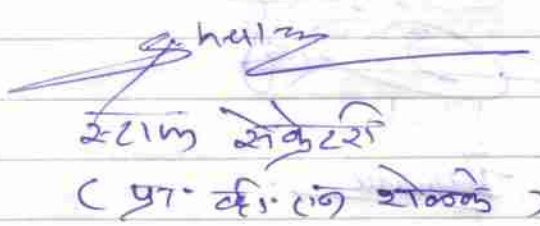 स्टाफ सेक्रेटरी
( प्रा. व्ही. एन. शेळके )